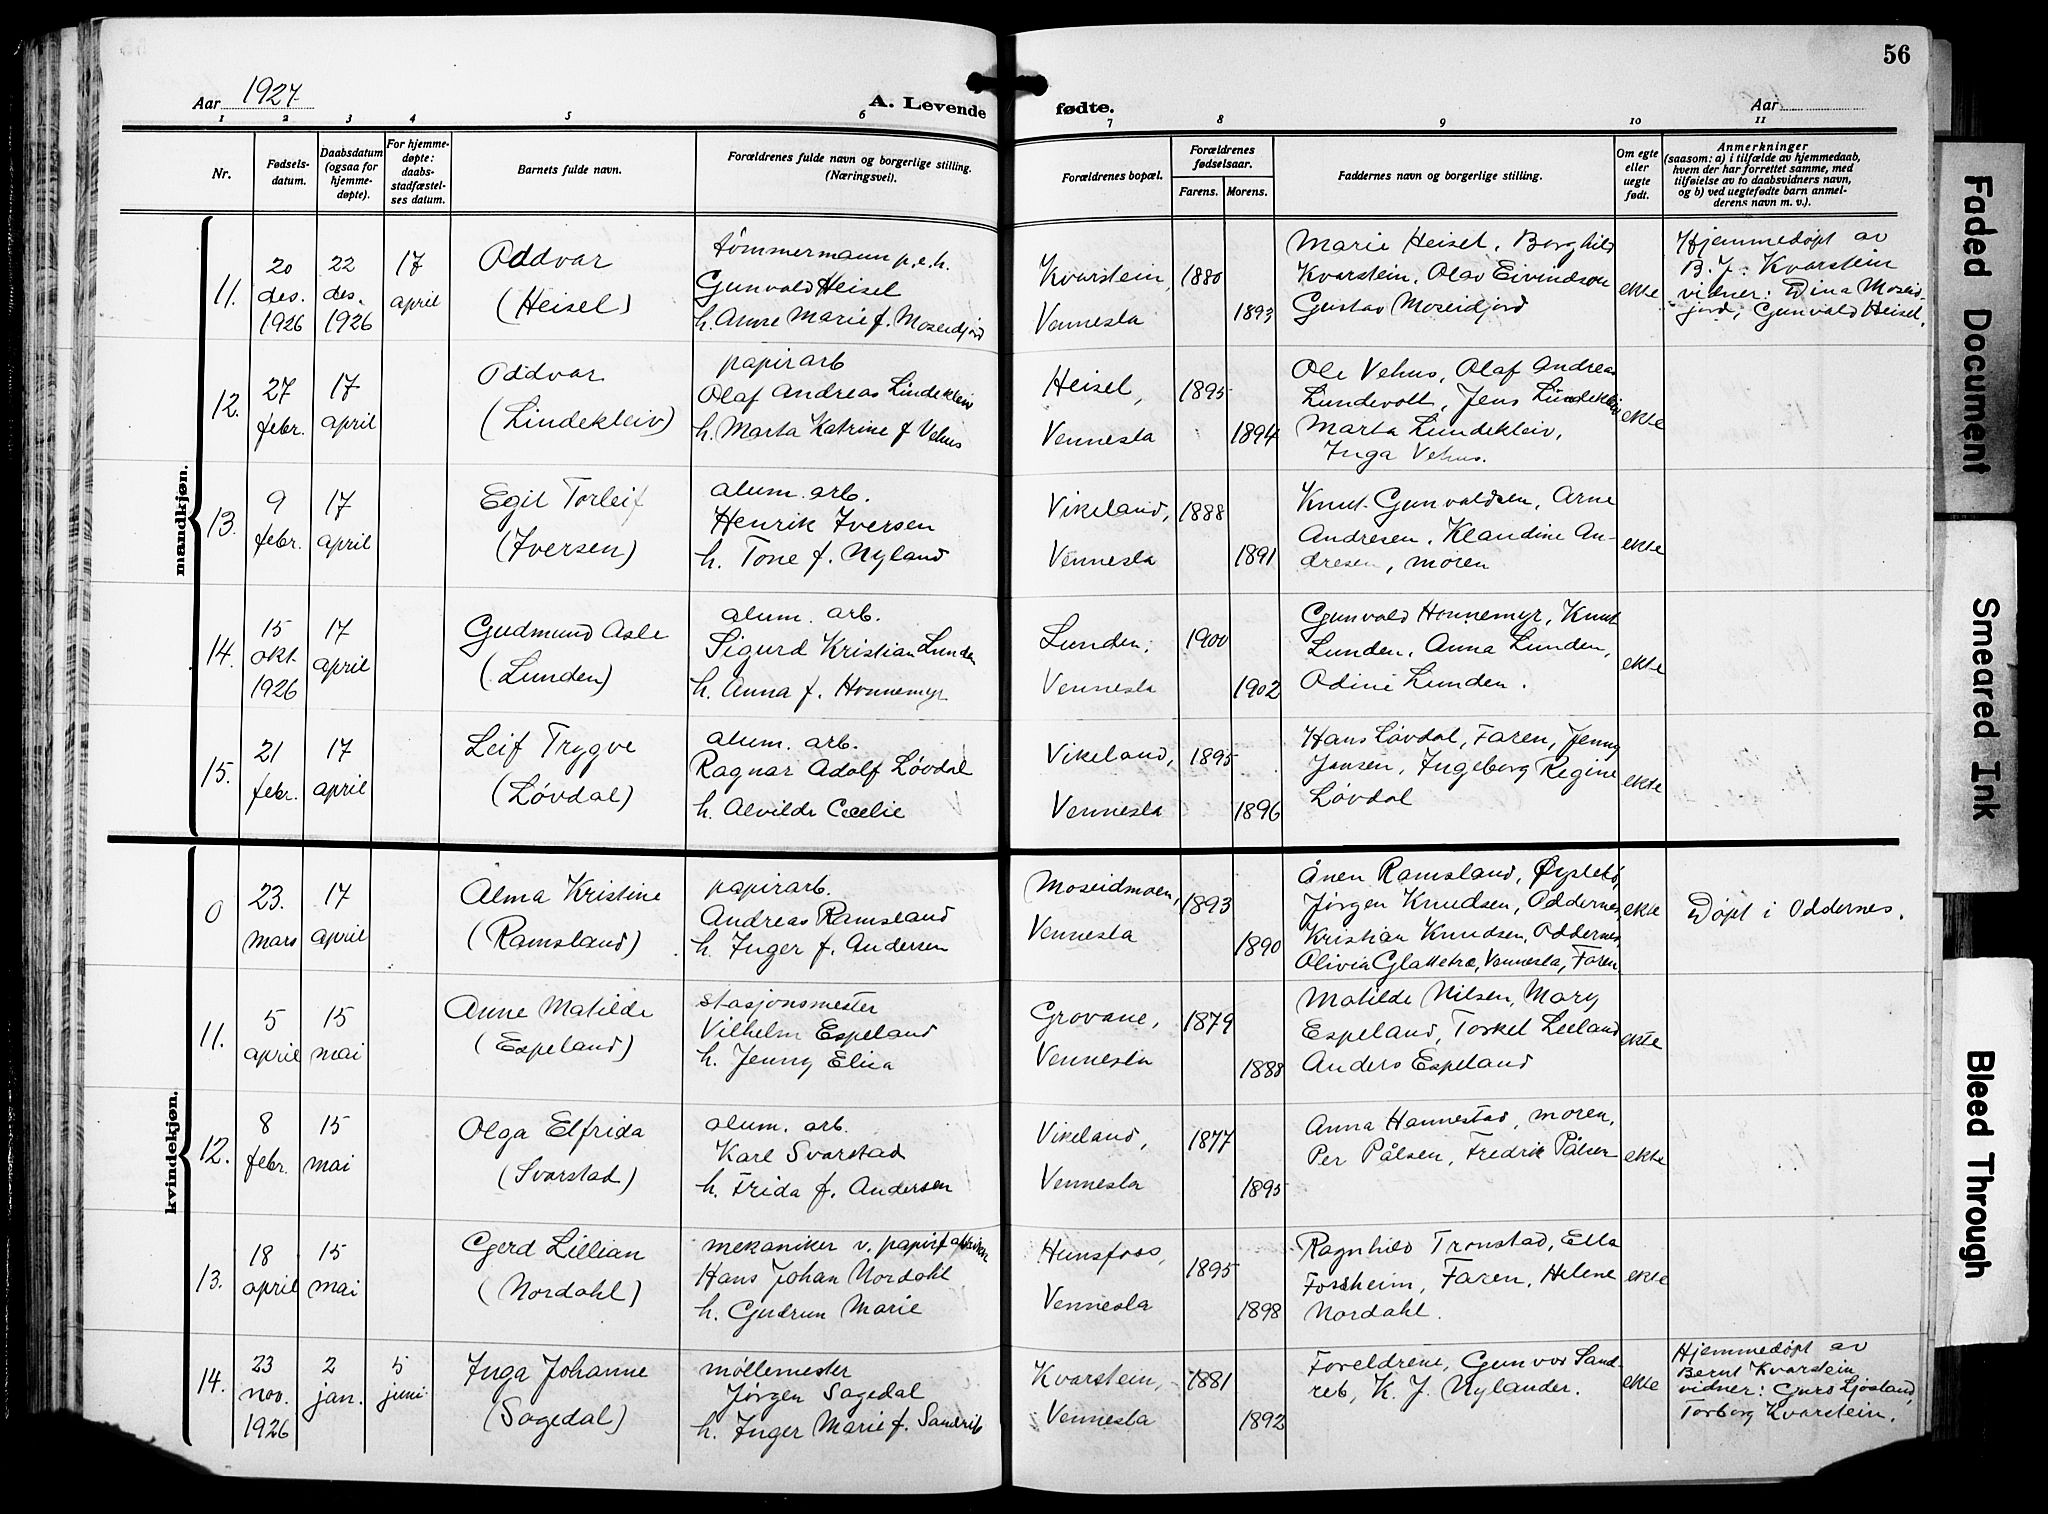 56
Aar 1927. A. Levende fødte. Aar
1 2 3 4 5 6 7 8 9 10 11
Nr.
Fødsels-
datum.
Daabsdatum
(ogsaa for
hjemme-
døpte).
For hjemme-
døpte:
daabs-
stadfæstel-
ses datum.
Barnets fulde navn.
Forældrenes fulde navn og borgerlige stilling.
(Næringsvei).
Forældrenes bopæl.
Forældrenes
fødselsaar.
Farens. Morens.
Faddernes navn og borgerlige stilling.
Om egte
eller
uegte
født.
Anmerkninger
(saasom: a) i tilfælde av hjemmedaab,
hvem der har forrettet samme, med
tilføielse av to daabsvidners navn,
og b) ved uegtefødte barn anmel-
derens navn m. v.).
mandkjøn.
11.
20
des.
1926
22
des.
1926
17
april
Oddvar
(Heisel)
tømmermann p.e.h.
Gunvald Heisel
h. Anne Marie f. Moseidjord
Kvarstein,
Vennesla
1880
1893
Marie Heisel, Borghild
Kvarstein, Olav Eivindson
Gustav Moseidjord
ekte
Hjemmedøpt av
B. J. Kvarstein
vidner: Dina Moseid-
jord, Gunvald Heisel.
12.
27
febr.
17
april
Oddvar
(Lindekleiv)
papirarb
Olaf Andreas Lindekleiv
h. Marta Katrine f Vehus
Heisel,
Vennesla
1895
1894
Ole Vehus, Olaf Andreas
Lundevoll, Jens Lindekleiv
Marta Lindekleiv,
Inga Vehus.
ekte
13.
9
febr.
17
april
Egil Torleif
(Iversen)
alum. arb.
Henrik Iversen
h. Tone f. Nyland
Vikeland,
Vennesla
1888
1891
Knut Gunvaldsen, Arne
Andresen, Klaudine An-
dresen, moren
ekte
14.
15
okt
1926
17
april
Gudmund Asle
(Lunden)
alum. arb.
Sigurd Kristian Lunden
h. Anna f. Honnemyr
Lunden,
Vennesla
1900
1902
Gunvald Honnemyr, Knut
Lunden, Anna Lunden,
Odine Lunden.
ekte
15.
21
febr.
17
april
Leif Trygve
(Løvdal)
alum. arb.
Ragnar Adolf Løvdal
h. Alvilde Cecelie
Vikeland,
Vennesla
1895
1896
Hans Løvdal, Faren, Jenny
Jansen, Ingeborg Regine
Løvdal
ekte
kvindekjøn.
0
23.
mars
17
april
Alma Kristine
(Ramsland)
papirarb.
Andreas Ramsland
h. Inger f. Andersen
Moseidmoen,
Vennesla
1893
1890
Ånen Ramsland, Øyslebø,
Jørgen Knudsen, Oddernes,
Kristian Knudsen, Oddernes,
Olivia Glattetre, Vennesla, Faren
ekte
Døpt i Oddernes.
11.
5
april
15
mai
Anne Matilde
(Espeland)
stasjonsmester
Vilhelm Espeland
h. Jenny Elisa
Grovane,
Vennesla
1879
1888
Matilde Nilsen, Mary
Espeland, Torkel Leeland
Anders Espeland
ekte
12.
8
febr.
15
mai
Olga Elfrida
(Svarstad)
alum. arb.
Karl Svarstad
h. Frida f. Andersen
Vikeland,
Vennesla
1877
1895
Anna Hannestad, moren,
Per Pålsen, Fredrik Pålsen
ekte
13.
18
april
15
mai
Gerd Lillian
(Nordahl)
mekaniker v. papirfabriken
Hans Johan Nordahl
h. Gudrun Marie
Hunsfoss,
Vennesla
1895
1898
Ragnhild Tronstad, Ella
Forsheim, Faren, Helene
Nordahl.
ekte
14.
23
nov.
1926
2
jan.
5
juni
Inga Johanne
(Sagedal)
møllemester
Jørgen Sagedal
h. Inger Marie f. Sandrib
Kvarstein,
Vennesla
1881
1892
Foreldrene, Gunvor Sand-
reb, K. J. Nylander.
ekte
Hjemmedøpt av
Bernt Kvarstein
vidner: Guro Ljosland,
Torborg Kvarstein.
Faded Document
Smeared Ink
Bleed Through